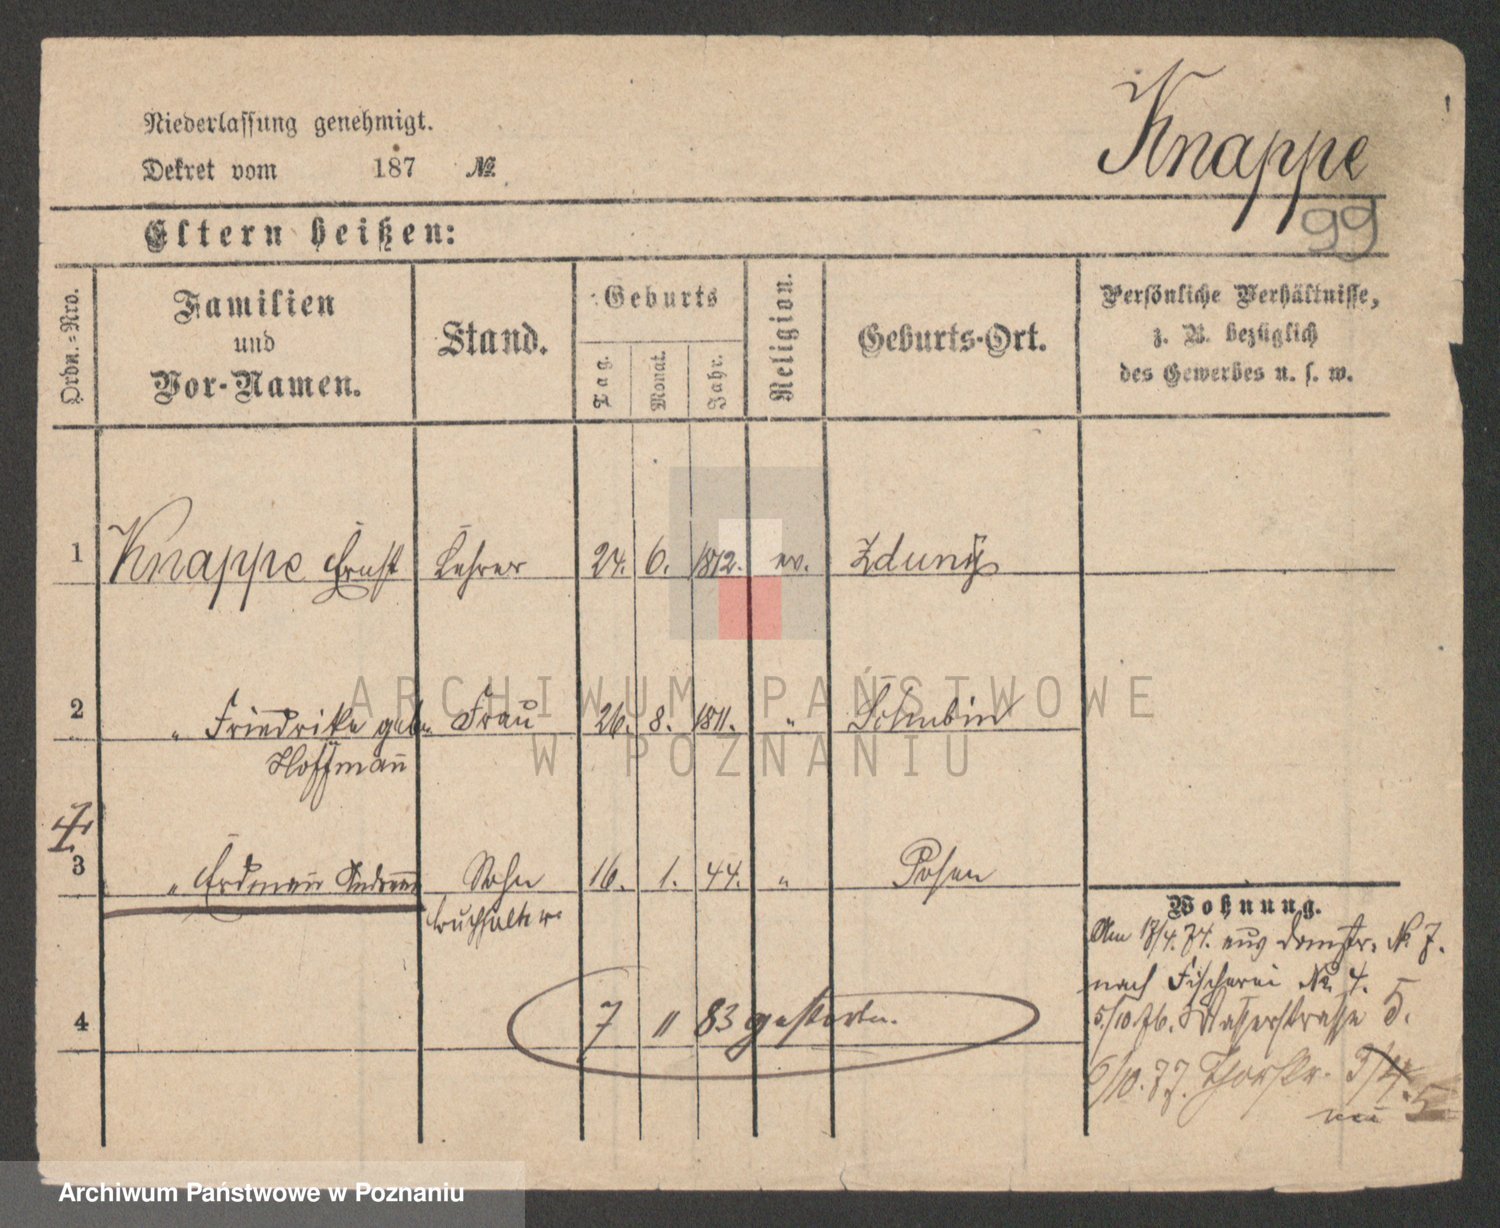 Niederlassung genehmigt.
Dekret vom 187 №
Knappe
99
Eltern heißen:
Ordn.-Nro.
Familien
und
Vor-Namen.
Stand.
Geburts
Tag.
Monat.
Jahr.
Religion.
Geburts-Ort.
Persönliche Verhältnisse,
z. B. bezüglich
des Gewerbes u. s. w.
1 Knappe Ernst Lehrer 24. 6. 1812. ev. Zduny
2 " Friedrike geb. Frau 26. 8. 1811. " Schubin
Hoffmann
3 " Erdmann Sohn 16. 1. 44. " Posen
Buchhalter
4 7 11 83 gestorben.
Wohnung.
Am 17/4. 74. aus Domstr. № 7.
nach Fischerei № 4.
5/10. 76. Wasserstrasse 5.
6/10. 77. Thorstr. 3/4.
5
ARCHIWUM PAŃSTWOWE
W POZNANIU
Archiwum Państwowe w Poznaniu